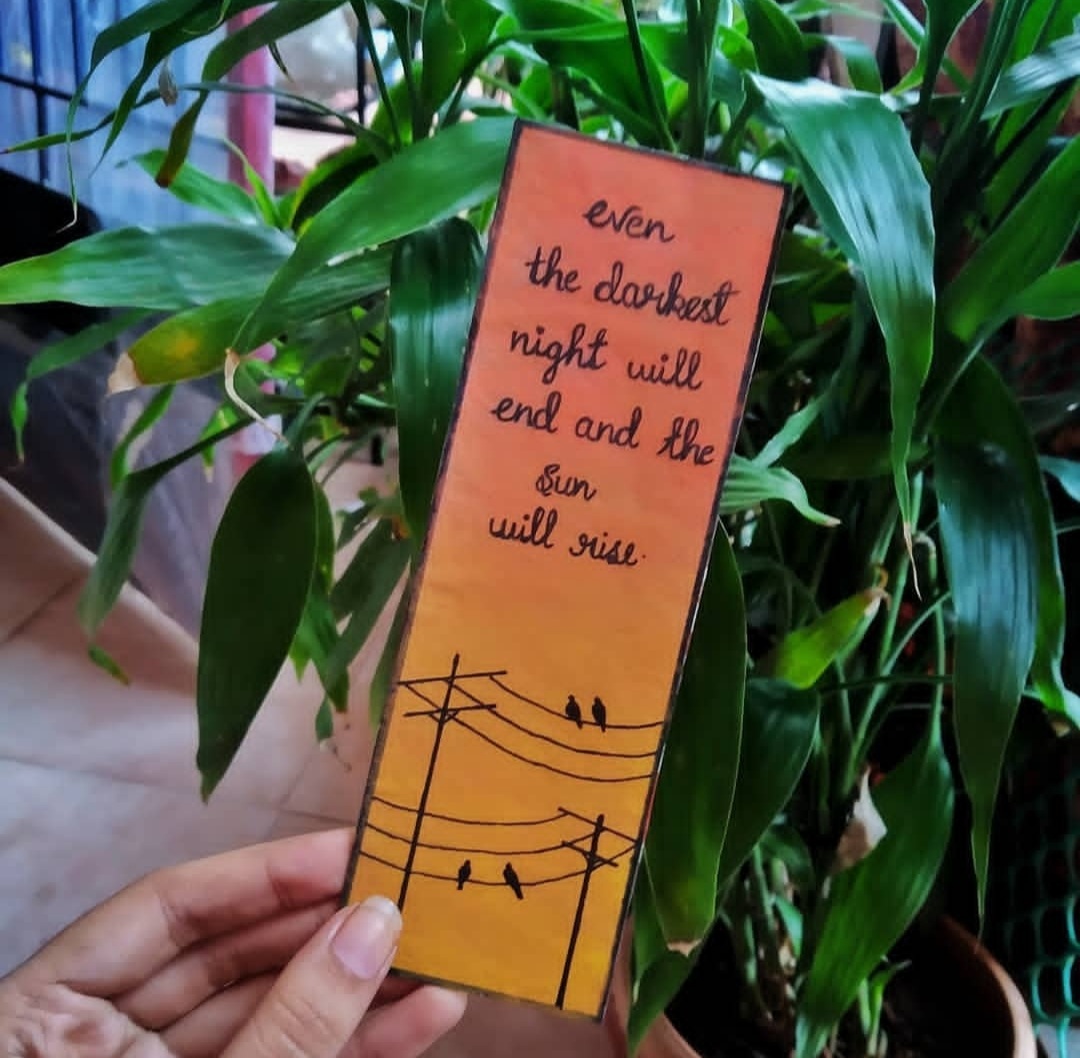 even
the darkest
night will
end and the
Sun
will rise.